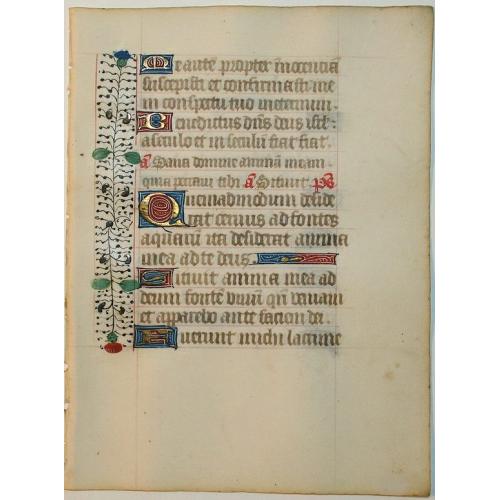 Me autē propter inocenciā
suscepisti et confirmasti me
in conspectu tuo ineternum.
Benedictus dn̄s deus isrl:
a seculo et in seculū fiat fiat.
a Sana domine animā meam
quia peccaui tibi a Sitiuit ps
Quēadmodum deside
rat ceruus ad fontes
aquarū ita desiderat anima
mea ad te deus.
Sitiuit anima mea ad
deum fontē viuū qn̄ veniam
et apparebo ante faciem dei.
Fuerunt michi lacrime